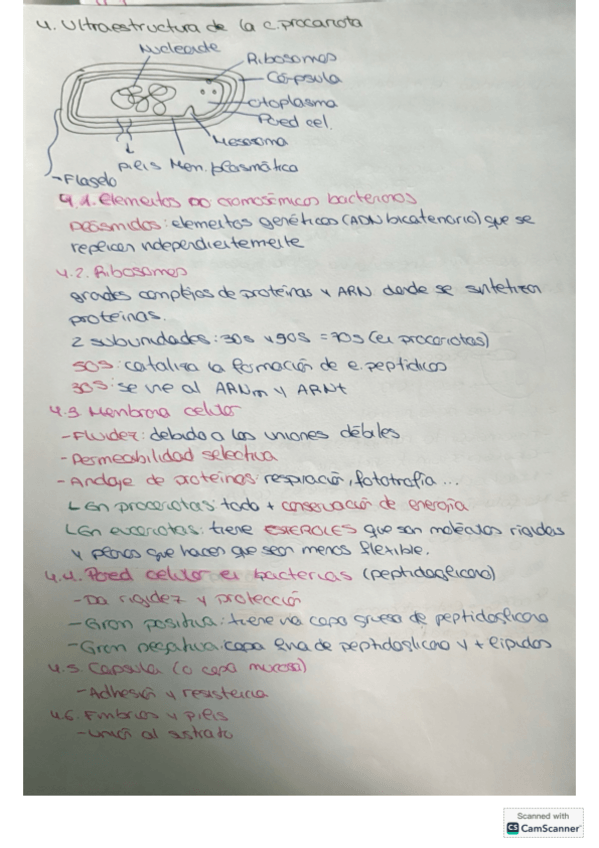 4. Ultraestructura de la c. procariota
Nucleoide
Ribosomas
Cápsula
Citoplasma
Pared cel.
Mesosoma
Pielis Mem. plasmática
Flagelo
4.1. Elementos no cromosómicos bacterianos
Plásmidos: elementos genéticos (ADN bicatenario) que se
replican independientemente
4.2. Ribosomas
grandes complejos de proteínas y ARN donde se sintetizan
proteínas.
2 subunidades: 30s y 50s = 70s (en procariotas)
50S: cataliza la formación de e. peptídicos
30S: se une al ARNm y ARNt
4.3 Membrana celular
- Fluidez: debido a las uniones débiles
- Permeabilidad selectiva
- Anclaje de proteínas: respiración, fototrofia...
En procariotas: todo + conservación de energía
En eucariotas: tiene ESTEROLES que son moléculas rígidas
y planas que hacen que sean menos flexible.
4.4. Pared celular en bacterias (peptidoglicano)
- Da rigidez y protección
- Gram positiva: tiene una capa gruesa de peptidoglicano
- Gram negativa: capa fina de peptidoglicano y + lípidos
4.5. Capsula (o capa mucosa)
- Adhesión y resistencia
4.6. Fimbrias y pielis
- unión al sustrato
Scanned with
CS CamScanner